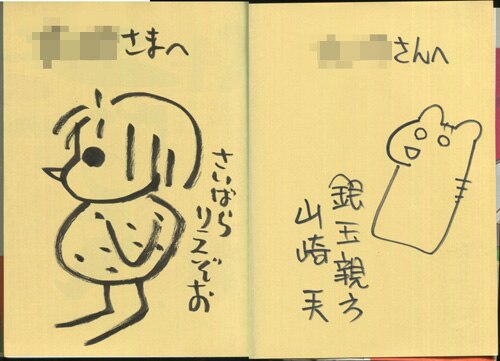 さまへ
さいばら
りえぞお
さんへ
銀玉親方
山崎一夫